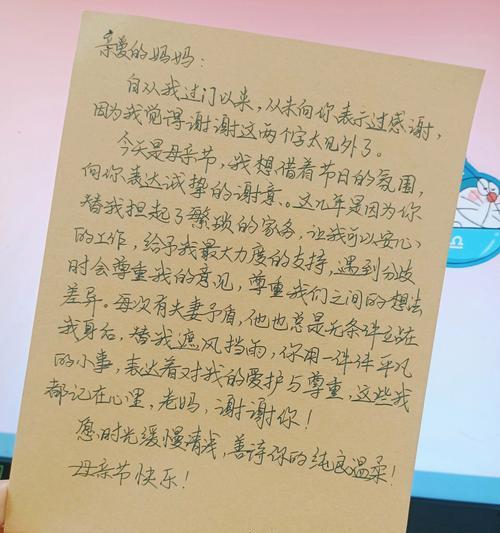 亲爱的妈妈:
自从我过门以来，从未向你表示过感谢，
因为我觉得谢谢这两个字太见外了。
今天是母亲节，我想借着节日的氛围，
向你表达诚挚的谢意。这几年是因为你
替我担起了繁琐的家务，让我可以安心
的工作，给予我最大力度的支持，遇到分歧
时会尊重我的意见，尊重我们之间的想法
差异。每次有夫妻矛盾，他也总是无条件站在
我身后，替我遮风挡雨，你用一件件平凡
的小事，表达着对我的爱护与尊重，这些我
都记在心里，老妈，谢谢你！
愿时光缓慢清浅，善待你的纯良温柔！
母亲节快乐！